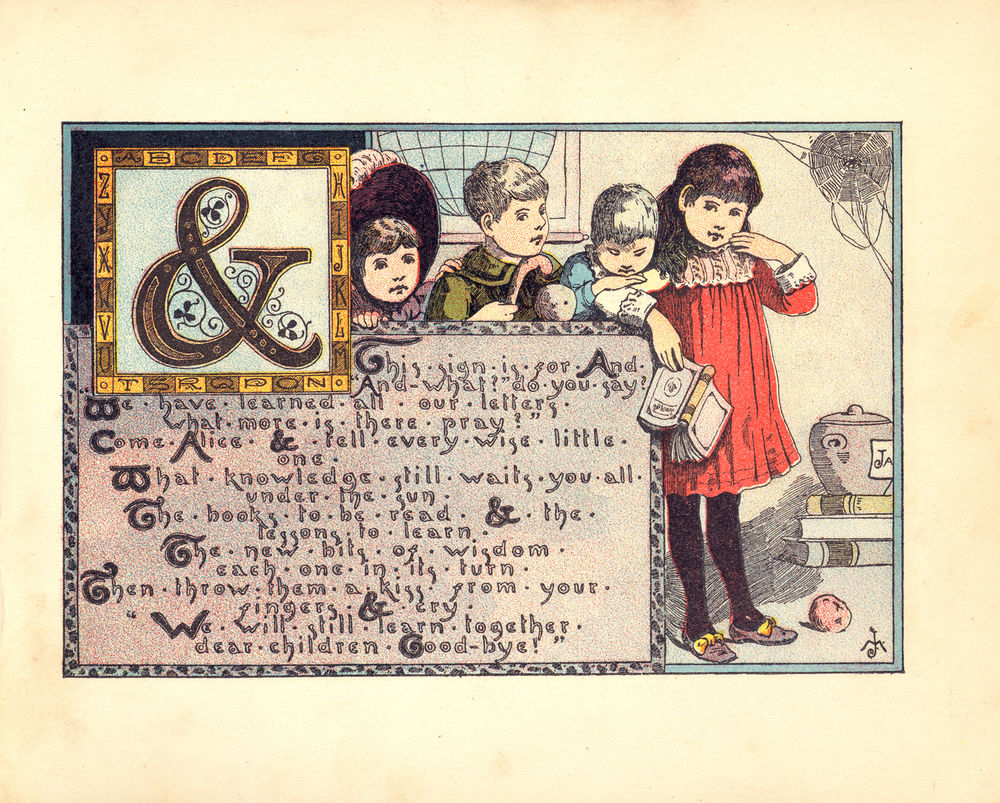 A B C D E F G
H I J K L M
N O P Q R S T
U V W X Y Z
&
This · sign · is · for · And ·
"And · what?" do · you · say?
"We · have · learned · all · our · letters ·
What · more · is · there · pray?"
Come · Alice · & · tell · every · wise · little ·
one ·
What · knowledge · still · waits · you · all ·
under · the · sun ·
The · books · to · be · read · & · the ·
lessons · to · learn ·
The · new · bits · of · wisdom ·
each · one · in · its · turn ·
Then · throw · them · a · kiss · from · your ·
fingers · & · cry ·
"We · will · still · learn · together ·
dear · children · Good-bye!"
JA